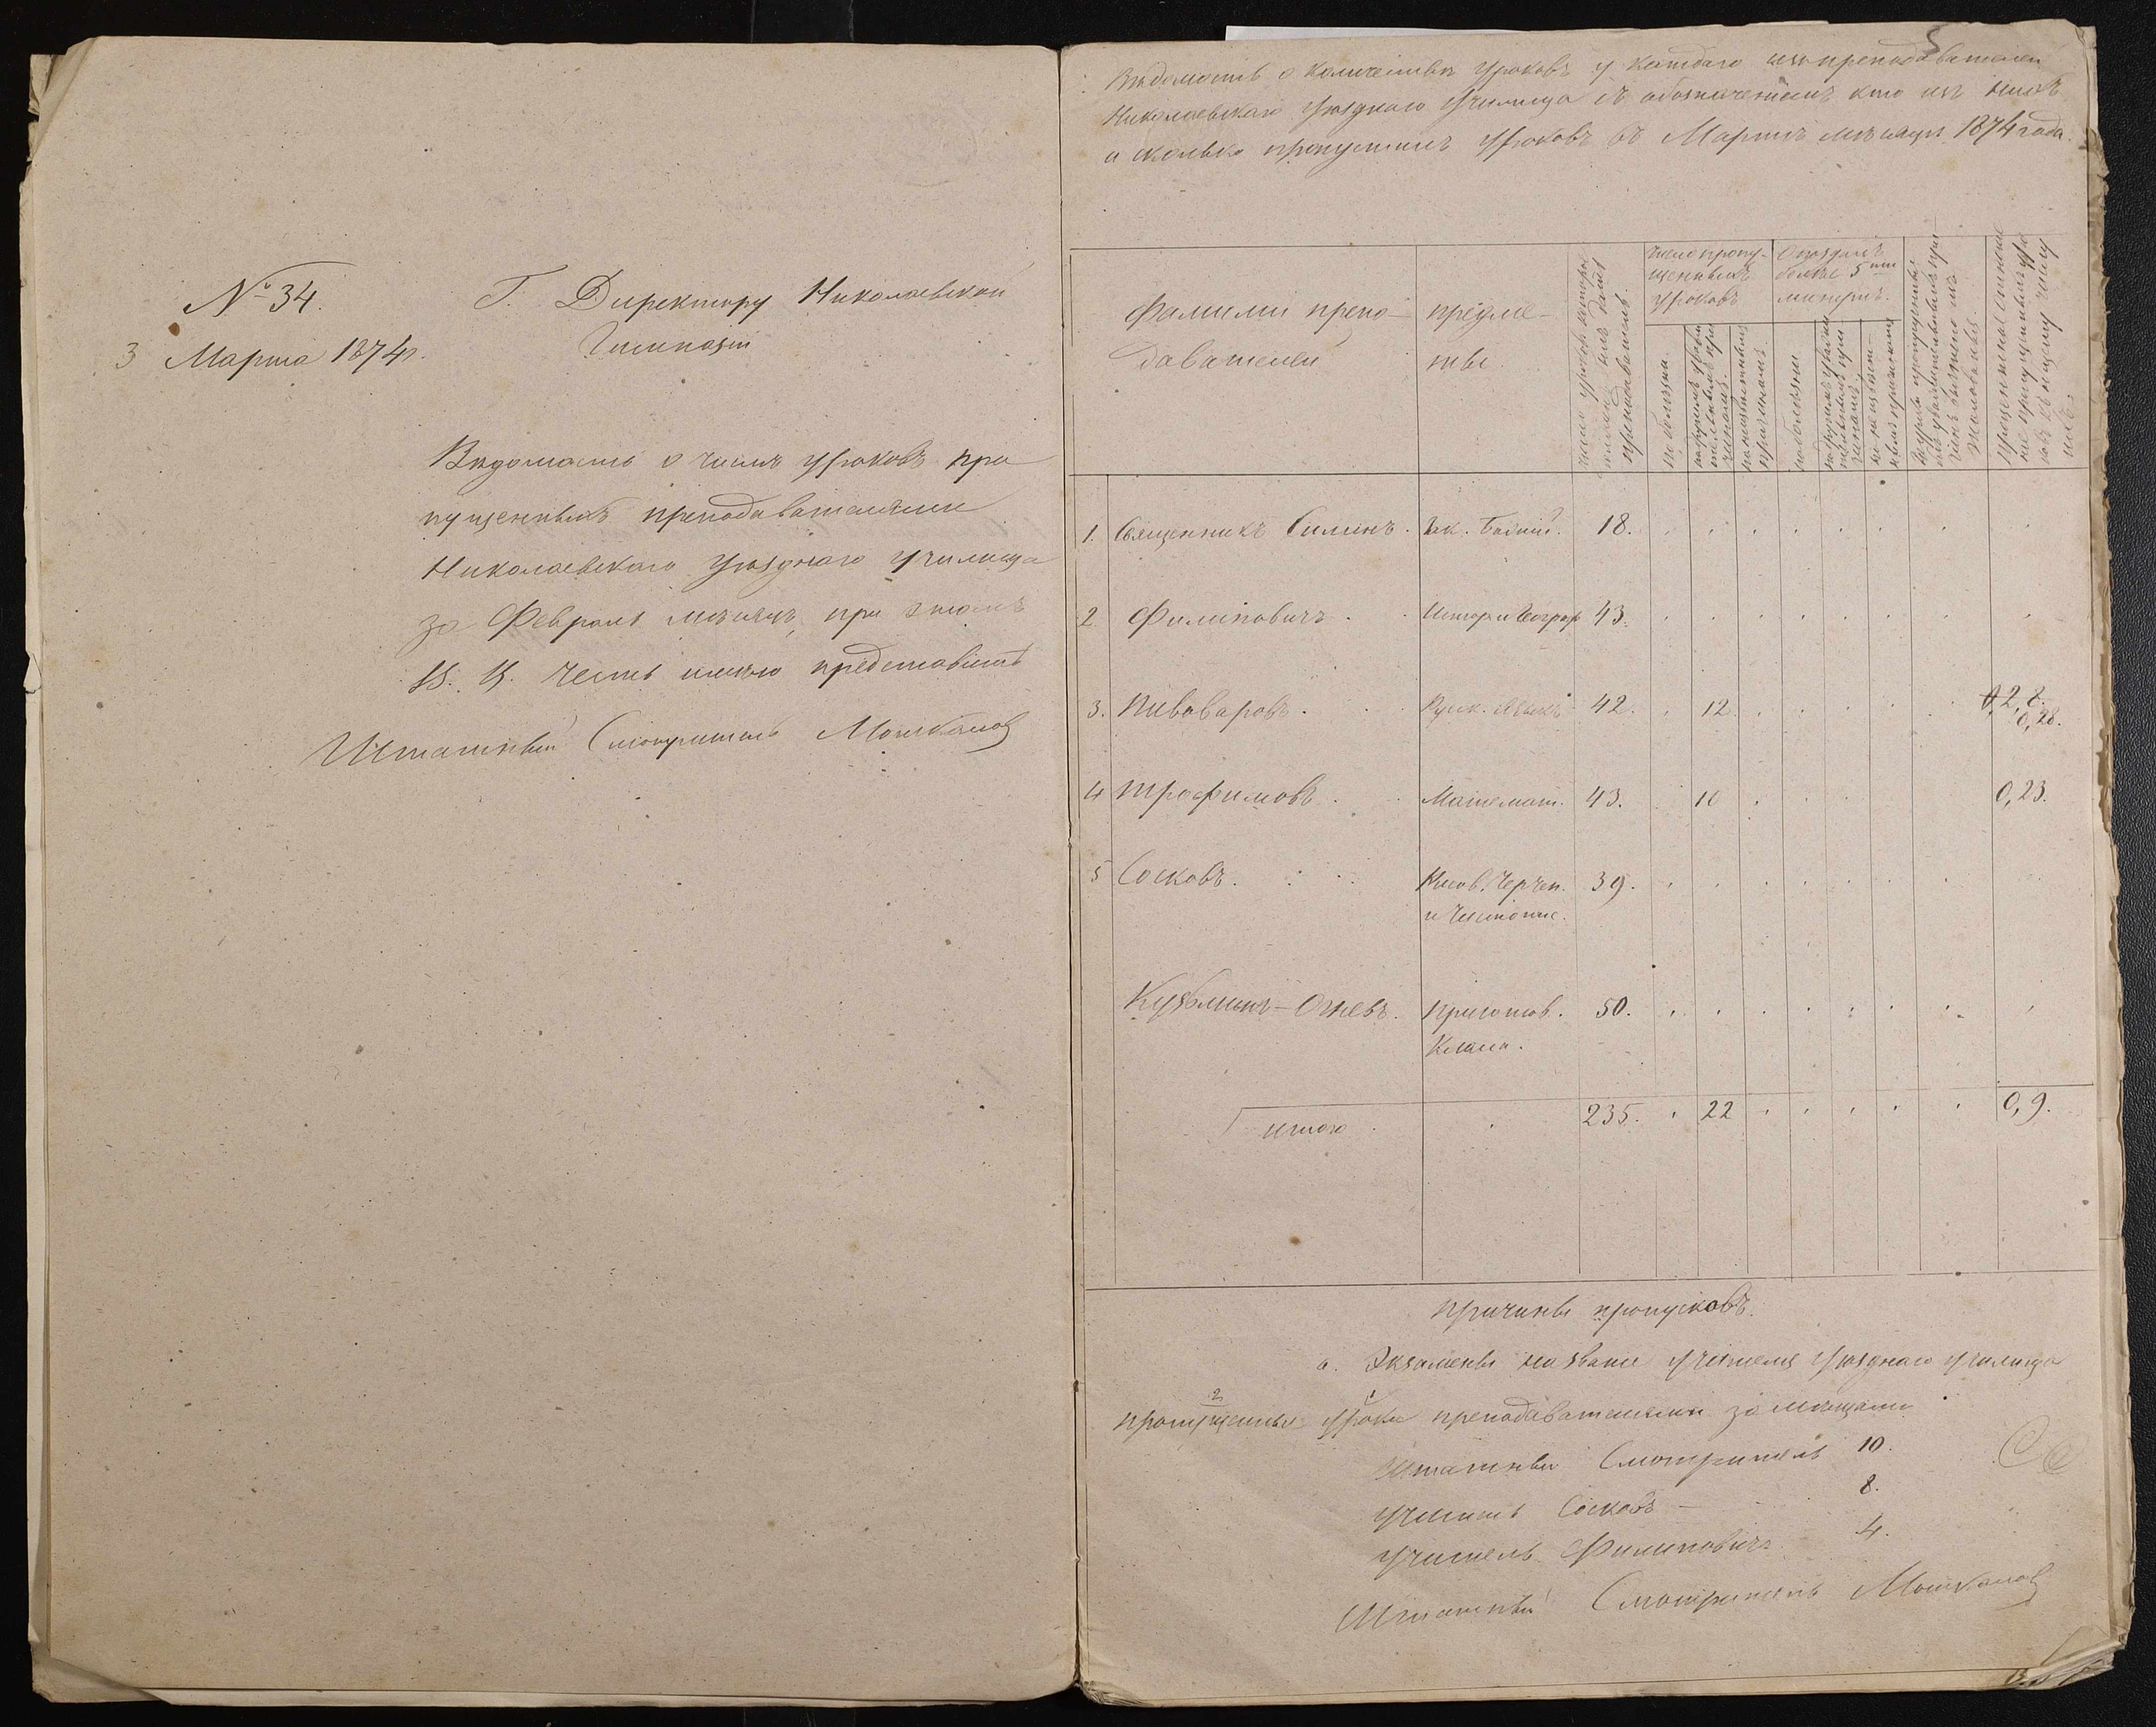 № 34.
3 Марта 1874 г.
Г. Директору Николаевской
Гимназіи
Вѣдомость о числѣ уроковъ про
пущенныхъ преподавателями
Николаевскаго Уѣзднаго училища
за Февраль мѣсяцъ, при этомъ
В. В. честь имѣю представить
Штатный Смотритель
5
Вѣдомость о количествѣ уроковъ у каждаго изъ преподавателей
Николаевскаго Уѣзднаго Училища съ обозначеніемъ кто изъ нихъ
и сколько пропустилъ уроковъ въ Мартѣ мѣсяцѣ 1874 года.
Фамиліи препо-
давателей
предме-
ты.
число уроковъ, которое
должны были дать
преподаватели.
Число пропу-
щенныхъ
уроковъ
Опоздали
болѣе 5ти
минутъ.
по болѣзни.
по другимъ уважи
тельнымъ при
чинамъ.
по неизвѣстнымъ
причинамъ.
по болѣзни
по другимъ уважи
тельнымъ при
чинамъ.
по неизвѣст-
нымъ причинамъ
жалованья.
Процентное отношение
1. Священникъ Силинъ. Зак. Божій. 18.
2. Филиповичъ. Истор. и Географ 43.
3. Пивоваровъ. Русск. Языкъ 42. 12. 0,28.
4 Трофимовъ. Математ. 43. 10 0,23.
5 Сосковъ. Рисов. Черчен. 39.
и Чистопис.
Кузьминъ-Огневъ. Приготов. 50.
Класса.
Итого 235. 22 0,9.
Причины пропусковъ.
а. Экзамены на званіе учителя Уѣзднаго училища
2 1
пропущенные уроки преподавателями замѣщали
Штатный Смотритель 10.
Учитель Сосковъ — 8.
Учитель Филиповичъ 4.
Штатный Смотритель